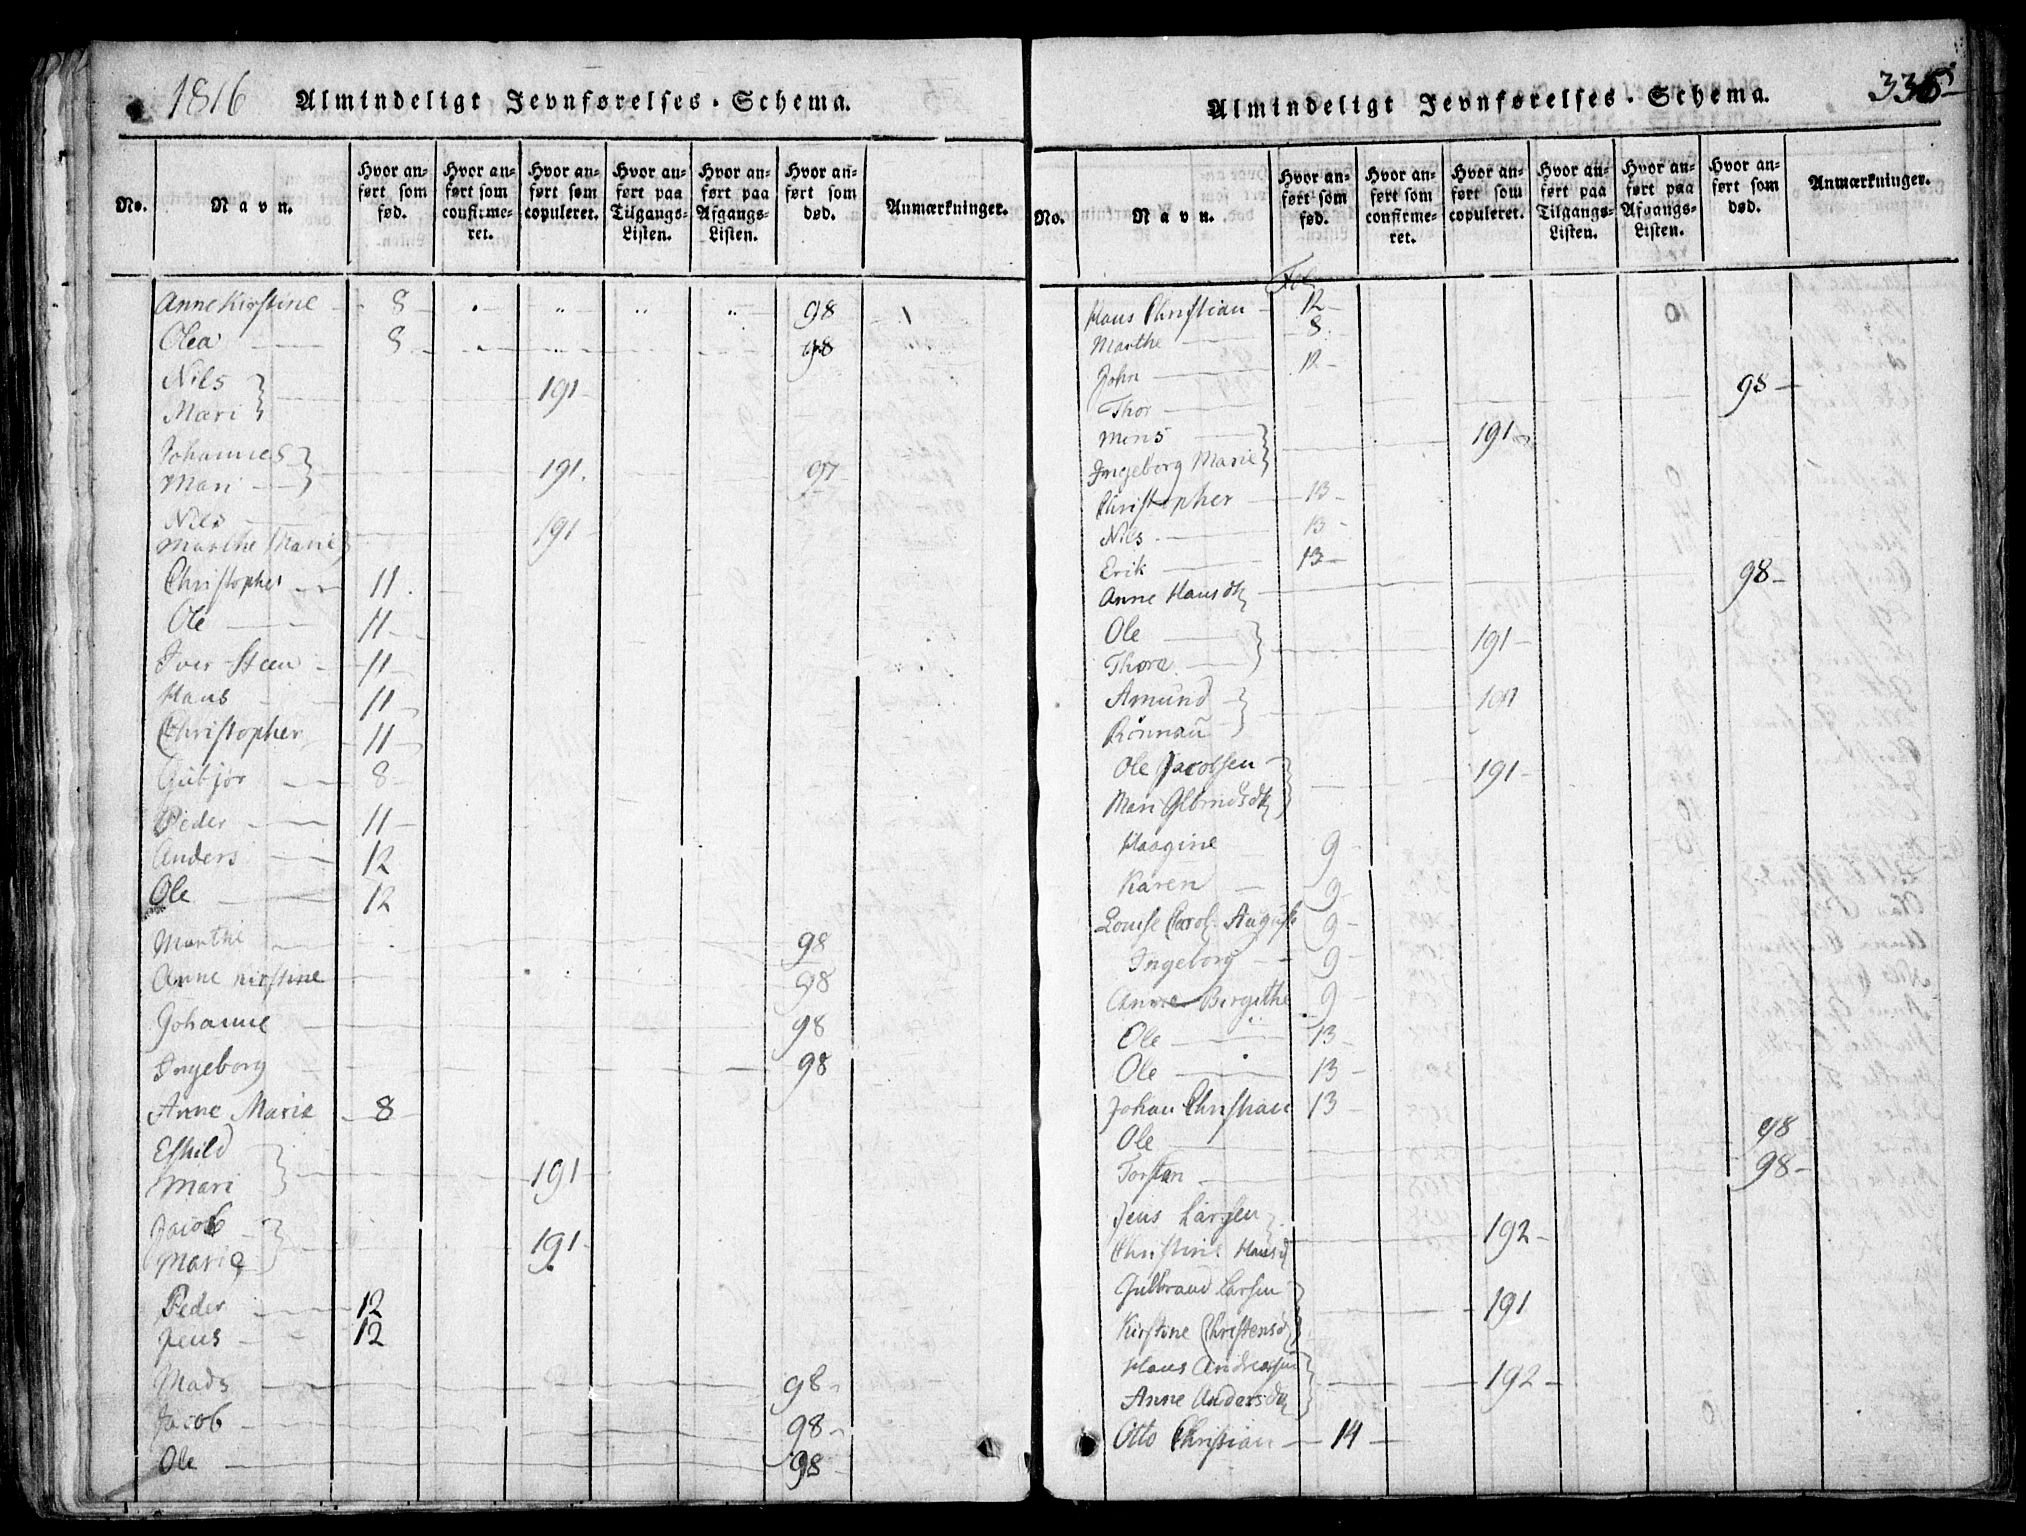 1816 Almindeligt Jevnførelses-Schema.
No. Navn. Hvor anført som fød. Hvor anført som confirmeret. Hvor anført som copuleret. Hvor anført paa Tilgangs-Listen. Hvor anført paa Afgangs-Listen. Hvor anført som død. Anmærkninger.
Anne Kirstine 8 98
Olea 8 98
Nils
Mari 191
Johannes
Mari 191. 97
Nils
Marthe Marie 191
Christopher 11
Ole 11
Iver Steen 11
Hans 11
Christopher 11
Gubjør 8
Peder 11
Anders 12
Ole 12
Marthe 98
Anne Kirstine 98
Johanne 98
Ingeborg 98
Anne Marie 8
Eskild
Mari 191
Jacob
Marie 191
Peder 12
Jens 12
Mads 98
Jacob 98
Ole 98
Almindeligt Jevnførelses-Schema. 335
No. Navn. Hvor anført som fød. Hvor anført som confirmeret. Hvor anført som copuleret. Hvor anført paa Tilgangs-Listen. Hvor anført paa Afgangs-Listen. Hvor anført som død. Anmærkninger.
Fol.
Hans Christian 12
Marthe 8
John 12
Thor 98
Mons 191
Ingeborg Marie
Christopher 13
Nils 13
Erik 13
Anne Hansdt 98
Ole 191
Thora
Amund 191
Rönnau
Ole Jacobsen 191
Mari
Haagine 9
Karen 9
Louise Carol. August 9
Ingeborg 9
Anne Birgithe 9
Ole 13
Ole 13
Johan Christian 13
Ole 98
Torsten 98
Jens Larsen
Christine Hansd 192
Gulbrand Larsen
Kirstine Christensd 191
Hans Andreasen
Anne Andersdt 192
Otto Christian 14